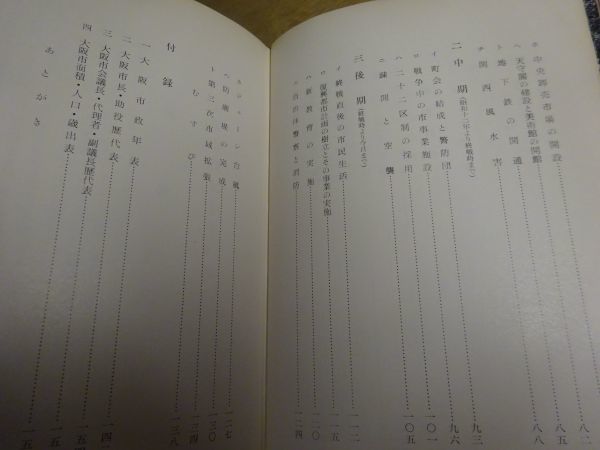 ホ 中央卸売市場の開設 八二
ヘ 天守閣の建設と美術館の開館 八五
ト 地下鉄の開通 八八
チ 関西風水害 九三
二 中期（昭和十二年より終戦時まで） 九六
イ 町会の結成と警防団 九六
ロ 戦争中の市事業施設 一〇一
ハ 二十二区制の採用 一〇五
ニ 疎開と空襲
三 後期（終戦時より今日まで） 一一二
イ 終戦直後の市民生活 一一五
ロ 復興都市計画の樹立とその事業の実施
ハ 新教育の実施 一二〇
ニ 自治体警察と消防 一二四
ホ ジェーン台風 一二七
ヘ 防潮堤の完成 一三〇
ト 第三次市域拡張 一三四
むすび 一三八
付録
一 大阪市政年表 一四
二 大阪市長・助役歴代表 一五
三 大阪市会議長・代理者・副議長歴代表 一五
四 大阪市面積・人口・歳出表 一五
あとがき